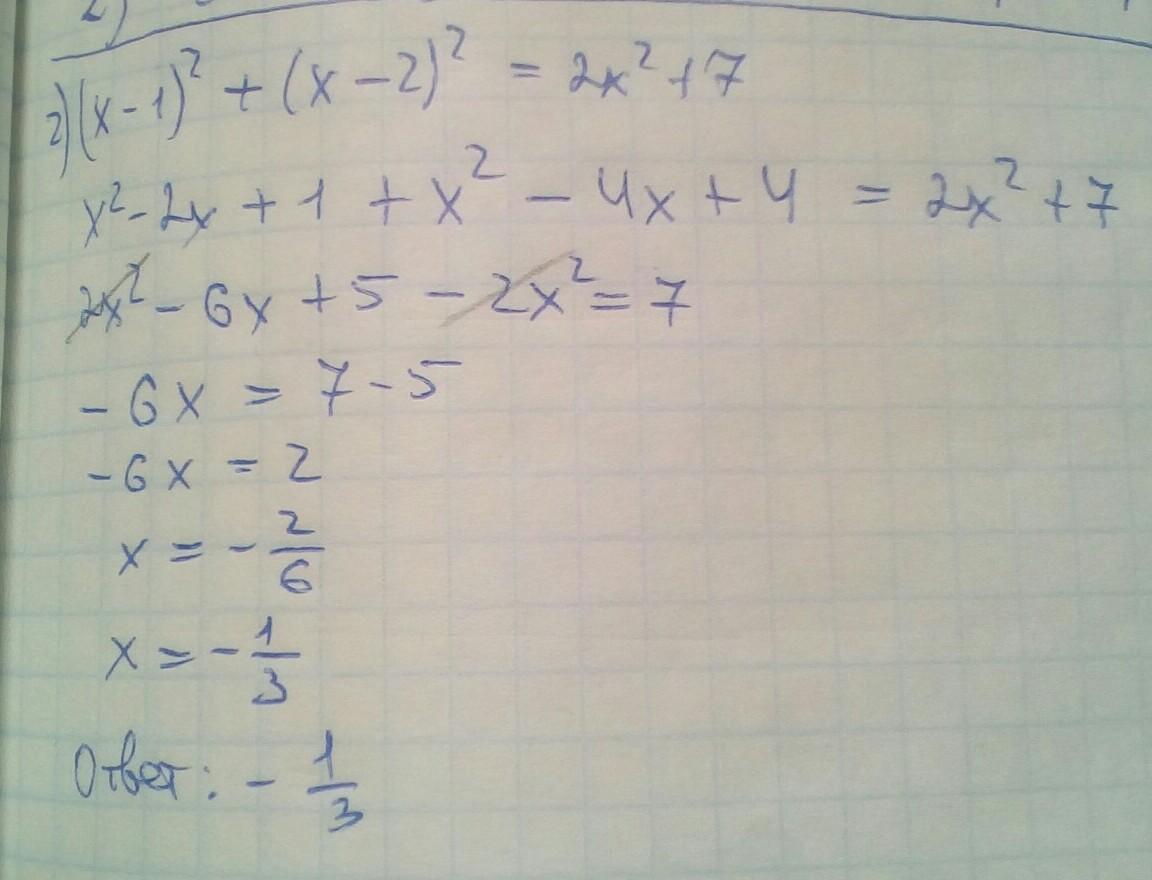 2) (x-1)² + (x-2)² = 2x²+7
x²-2x+1+x²-4x+4 = 2x²+7
2x²-6x+5-2x²=7
-6x = 7-5
-6x = 2
x = -2/6
x = -1/3
Ответ: -1/3